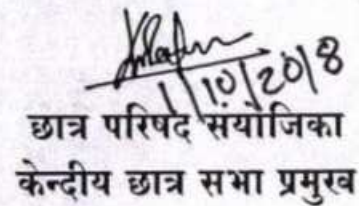 1/10/2018
छात्र परिषद संयोजिका
केन्दीय छात्र सभा प्रमुख